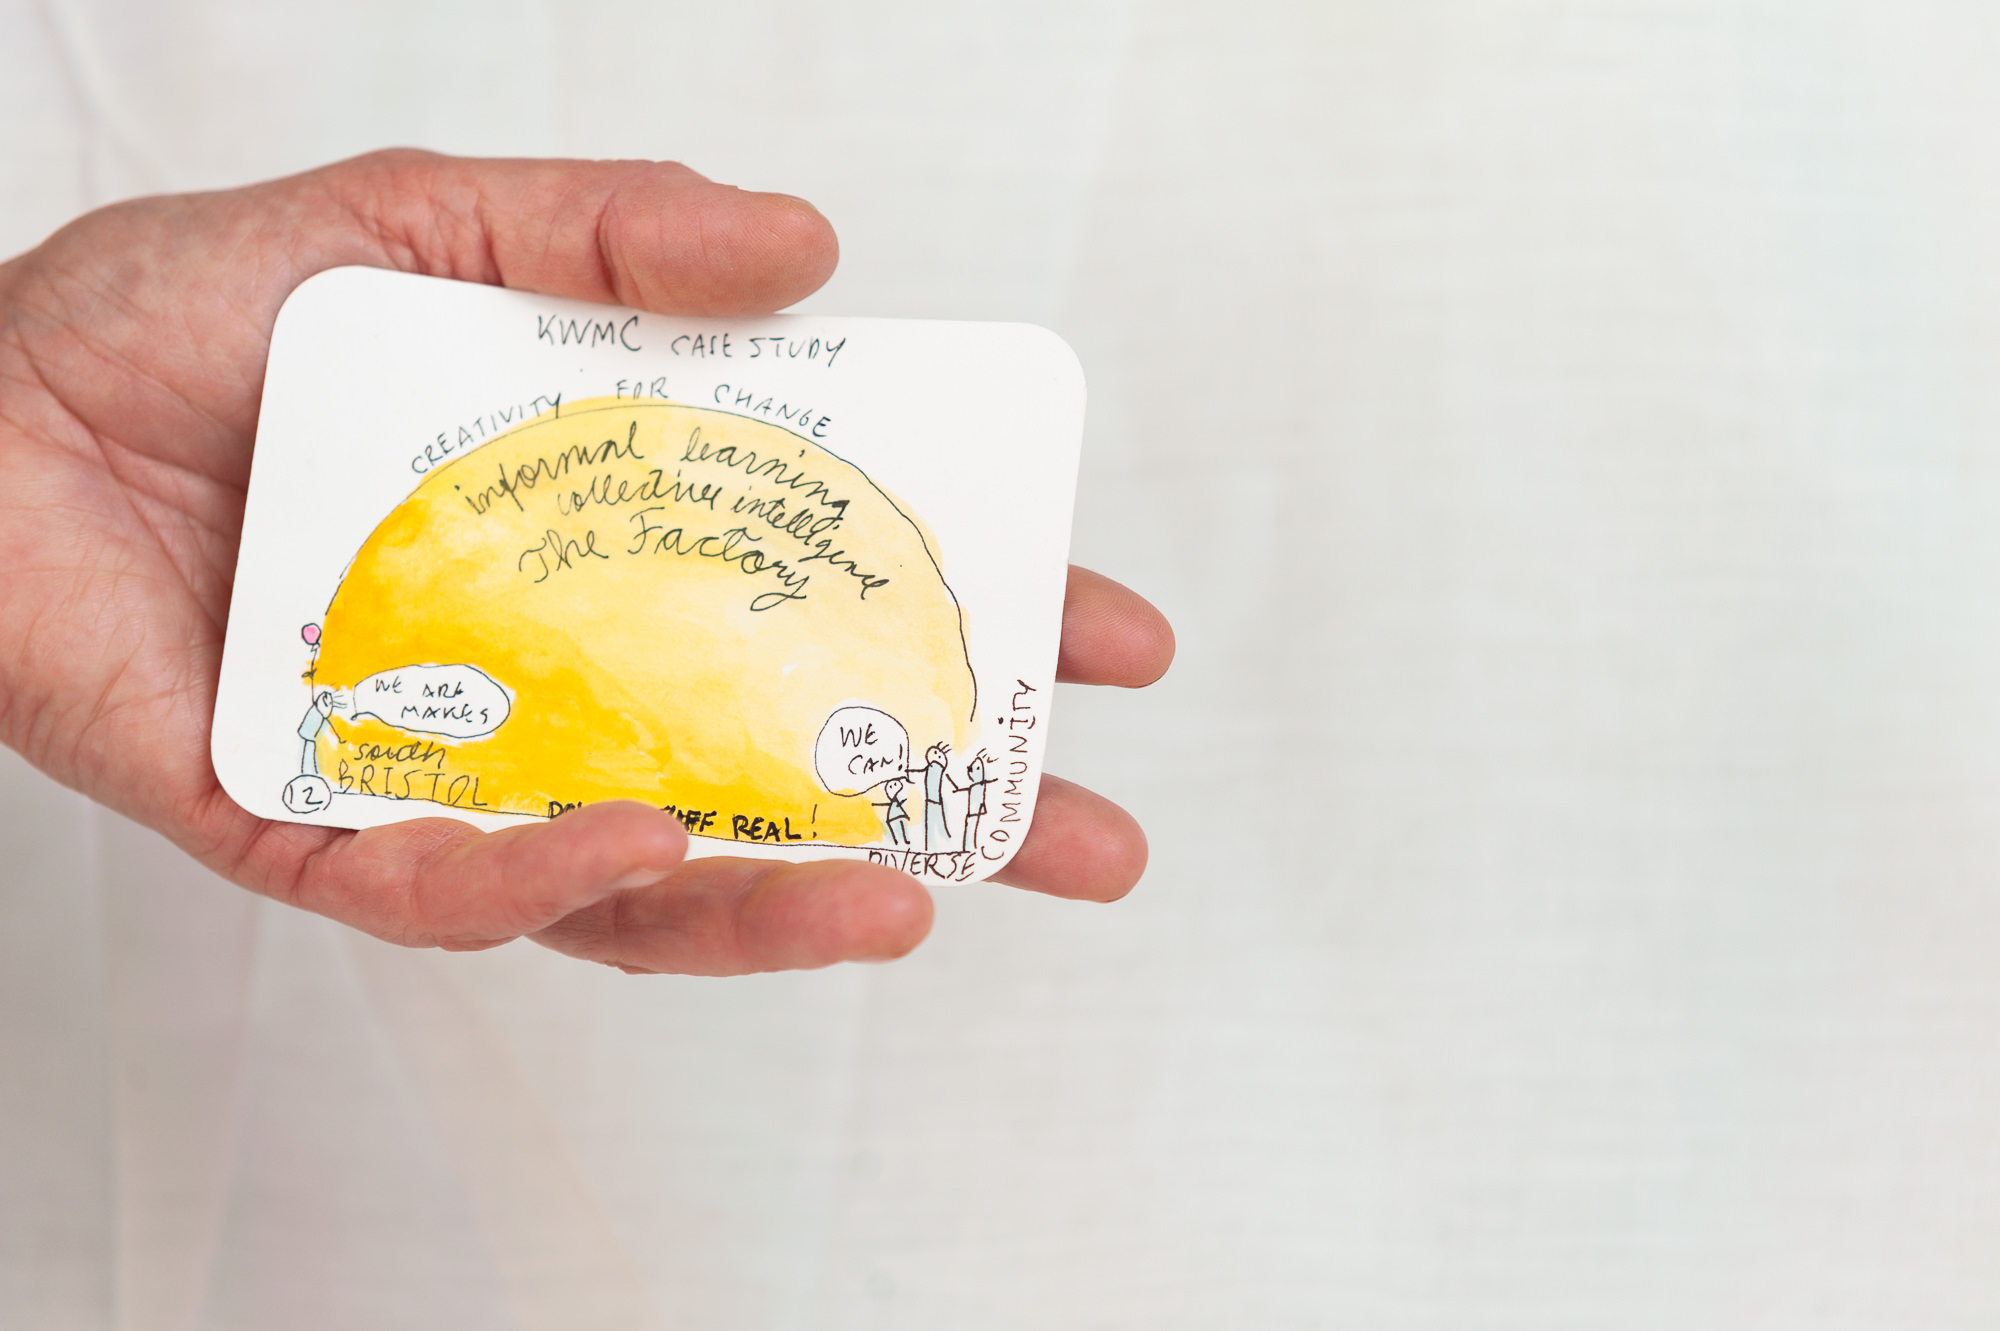 KWMC CASE STUDY
CREATIVITY FOR CHANGE
informal learning
collective intelligence
The Factory
WE ARE
MAKERS
South
BRISTOL
12
WE
CAN!
REAL!
DIVERSE
COMMUNITY